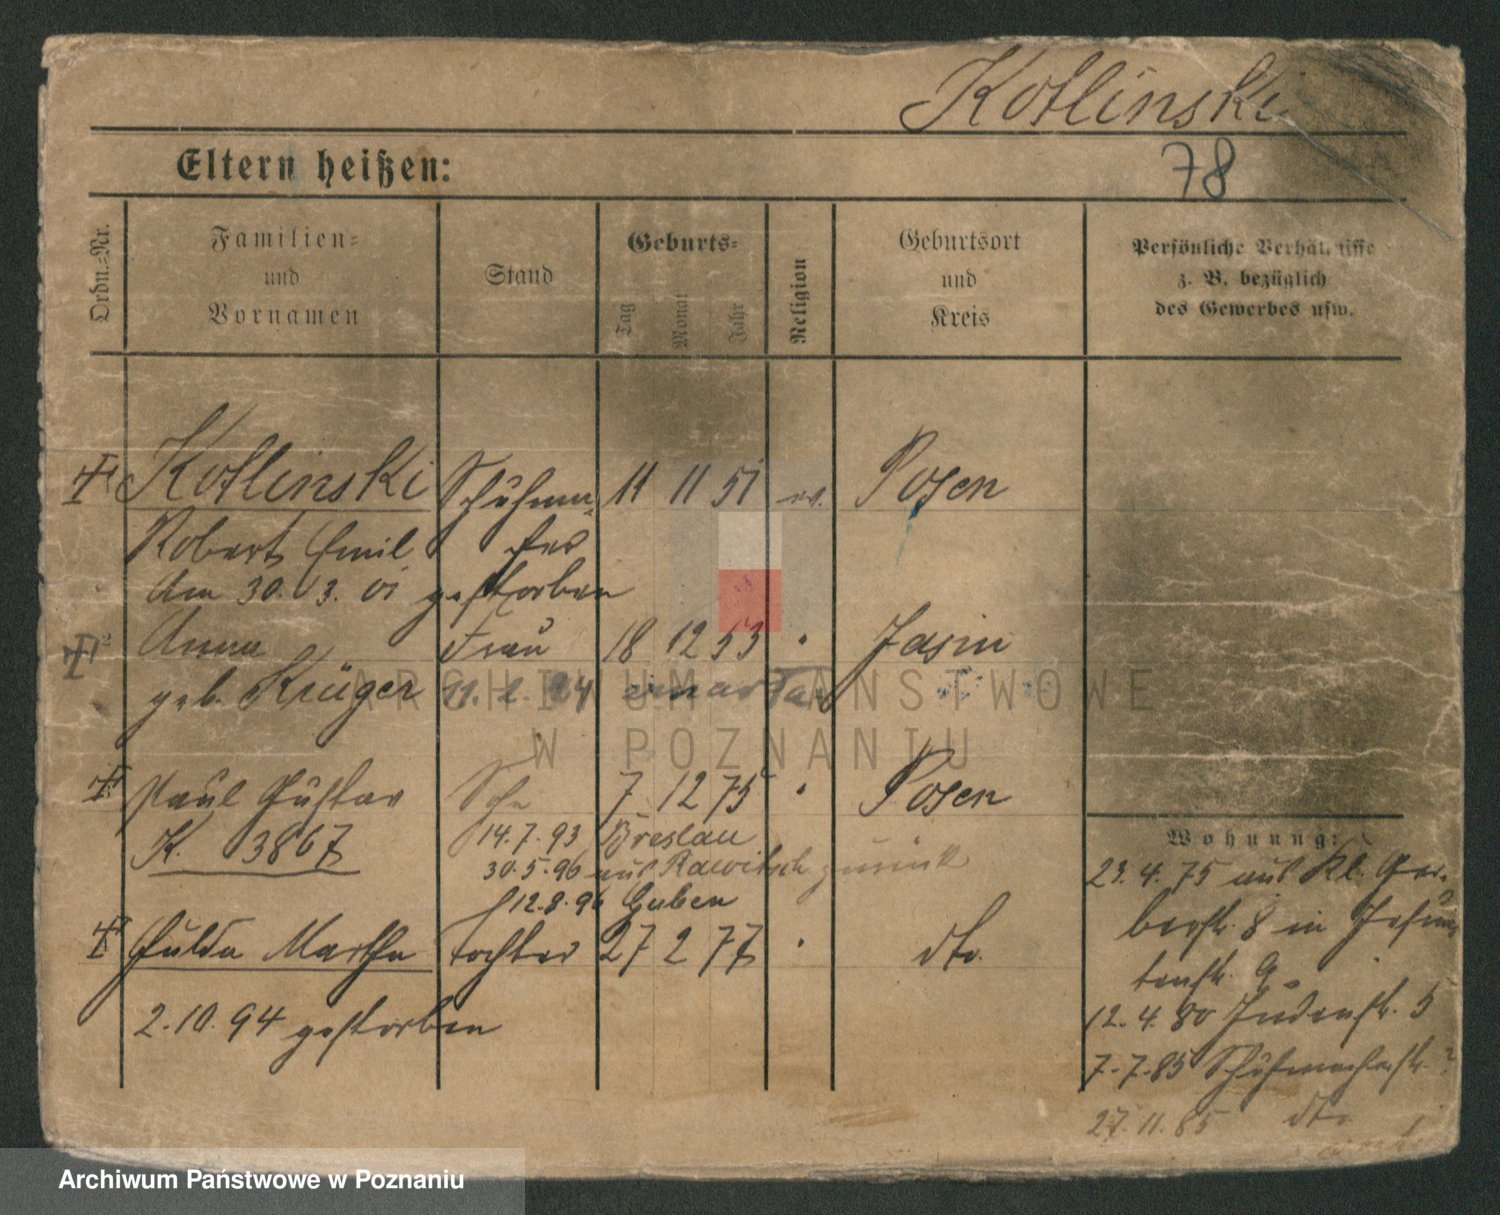 Kotlinski
Eltern heißen:
78
Ordn.-Nr.
Familien-
und
Vornamen
Stand
Geburts-
Tag
Monat
Jahr
Religion
Geburtsort
und
Kreis
Persönliche Verhältnisse
z. B. bezüglich
des Gewerbes usw.
Kotlinski Schuhma- 11 11 51 ev. Posen
Robert Emil cher
Am 30. 3. 01 gestorben
Anna Frau 18 12 53 " Jasin
geb. Krüger 11. 2.
ARCHIWUM PAŃSTWOWE
W POZNANIU
Paul Gustav Sohn 7 12 75 " Posen
K. 3867 14.7.93 Breslau
30.5.96 aus Rawitsch zurück
12.8.96 Guben
Hulda Martha Tochter 27 2 77 " dto.
2.10.94 gestorben
Wohnung:
23.4.75 aus Kl. Ger-
berstr. 8 in
tenstr. 9.
12.4.80 Judenstr. 5
7.7.85 Schuhmacherstr.
27.11.85 dto.
Archiwum Państwowe w Poznaniu